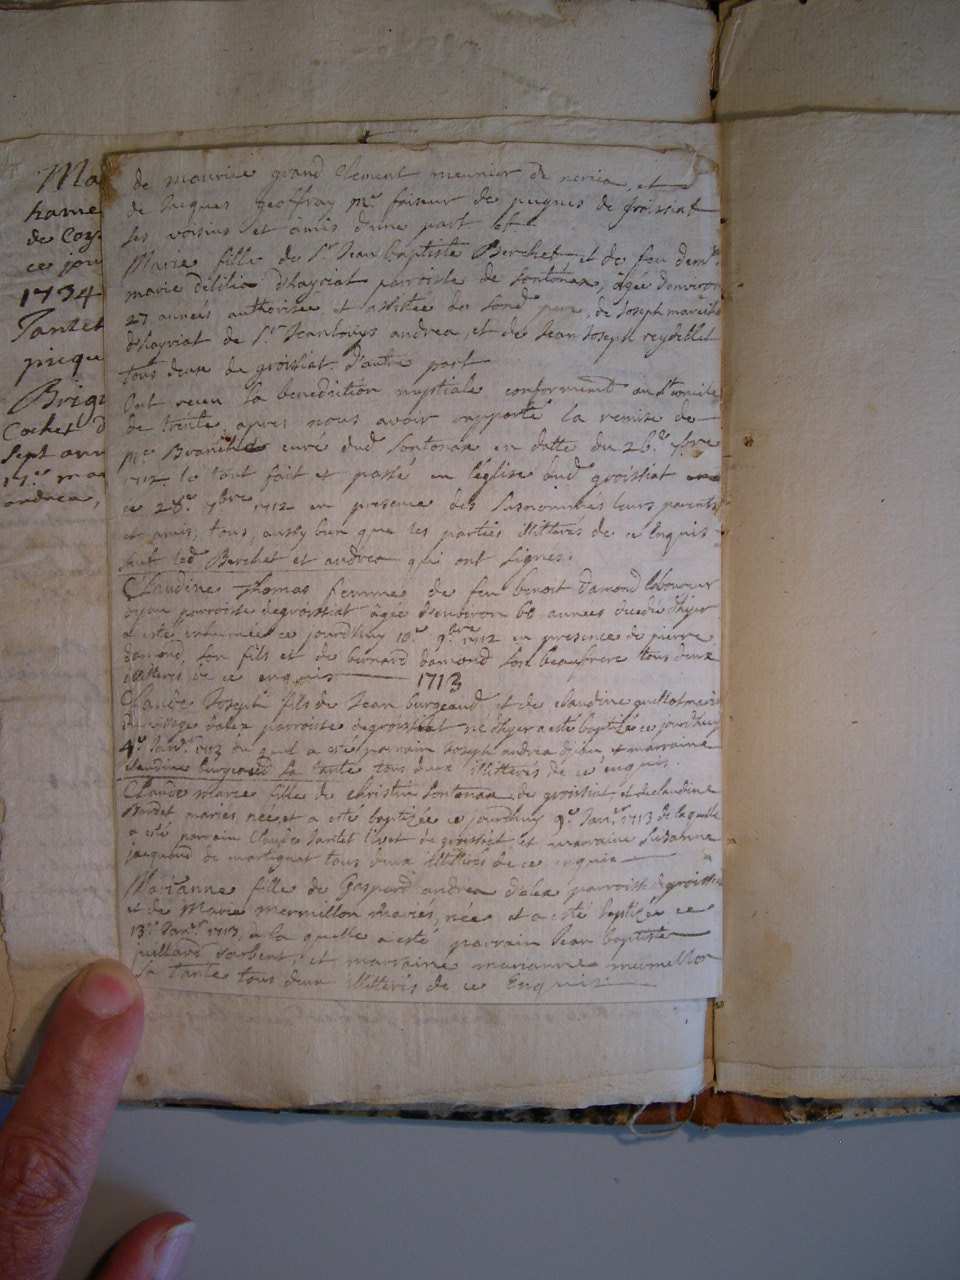 Ma
hame
de Coy
ce jou
1734
Jantet
picqu
Brig
Cochet D
Sept ann
andrea,
de maurice grand Clement meunier de nerciea, et
de Jacques Geoffray me. faiseur de pignes de groissiat
ses voisins et amis d'une part et
Marie fille de Sr. Jean baptiste Berchet et de feu dem.lle
marie delilia d'hayriat parroisse de Sontonax, âgée d'environ
27 années authorisée et assistée du Sond. pere, de Joseph
d'hayriat de Sr. Jeanlouys andrea, et de Jean Joseph reydellet
tous deux de groissiat d'autre part
Ont receu la benediction nuptiale conformement au St. Concile
de trente, apres nous avoir rapporté la remise de
curé dud. Sontonax en datte du 26e. 7bre
1712. le tout fait et passé en l'église dud. groissiat
ce 28e. 7bre 1712 en presence des Susnommés leurs parents
et amis, tous, aussy bien que les parties illitterés de ce Enquis
sauf led. Berchet et andrea qui ont signés.
Claudine Thomas femme de feu benoit damond laboureur
dijon parroisse de groissiat âgée d'environ 60 années decedée d'hyer
a esté inhumée ce jourdhuy 10e. 9bre 1712 en presence de pierre
damond, son fils et de bernard damond son beaufrere tous deux
illitterés de ce enquis
1713
Claude Joseph fils de Jean burgeaud et de claudine
d'alex parroisse de groissiat né d'hyer a esté baptisé ce jourdhuy
4e. Janv. 1713 du quel a esté parrain Joseph andrea et marraine
claudine burgeaud sa tante tous deux illitterés de ce enquis.
Claude marie fille de christin Sontonax de groissiat, et de claudine
mariés née et a esté baptizée ce jourdhuy 9e. Janv. 1713 de laquelle
a esté parrain Claude Jantet de groissiat et marraine Susanne
jacquand de martignat tous deux illitterés de ce enquis
Marianne fille de Gaspard andrea d'alex parroisse de groissiat
et de Marie mermillon mariés, née et a esté baptizée ce
13e. Janv. 1713, a la quelle a esté parrain Jean baptiste
juillard d'arbent, et marraine marianne mermillon
Sa tante tous deux illitterés de ce Enquis